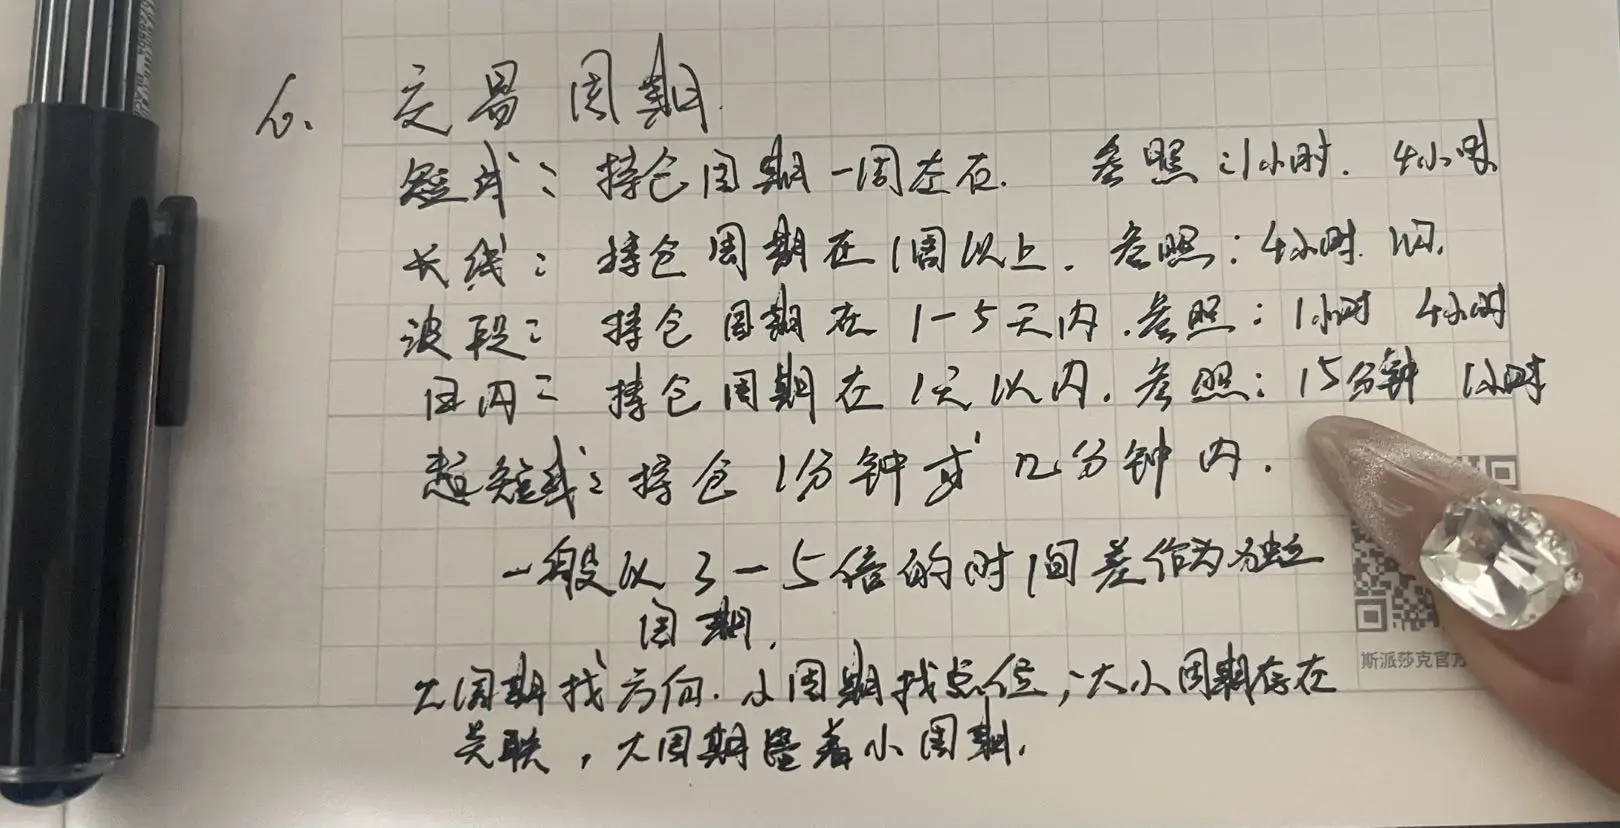 6. 交易周期.
短线：持仓周期一周左右. 参照：1小时. 4小时
长线：持仓周期在1周以上. 参照：4小时.
波段：持仓周期在1-5天内. 参照：1小时 4小时
日内：持仓周期在1天以内. 参照：15分钟 1小时
超短线：持仓1分钟或几分钟内.
一般以3-5倍的时间差作为独立
周期.
大周期找方向. 小周期找点位；大小周期存在
关联，大周期 着小周期.
斯派莎克官方